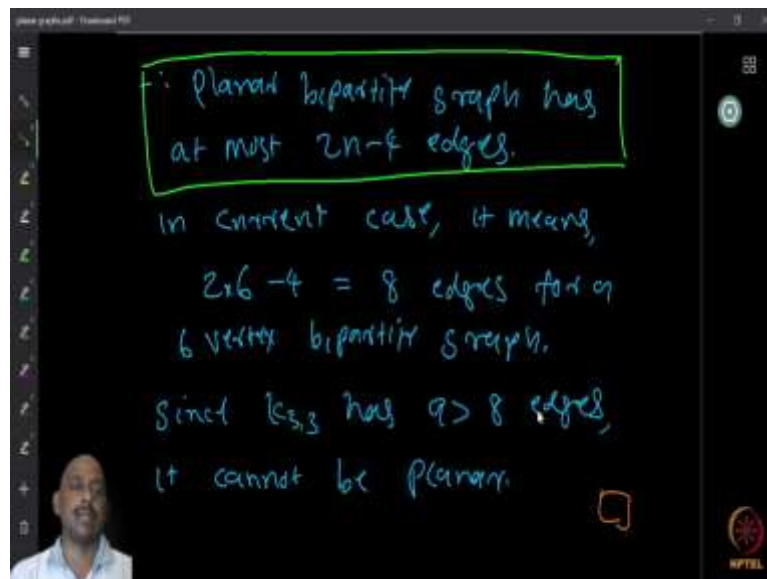 ∴ Planar bipartite graph has
at most 2n-4 edges.
In current case, it means,
2x6 -4 = 8 edges for a
6 vertex bipartite graph.
Since K3,3 has 9 > 8 edges,
it cannot be planar.
NPTEL